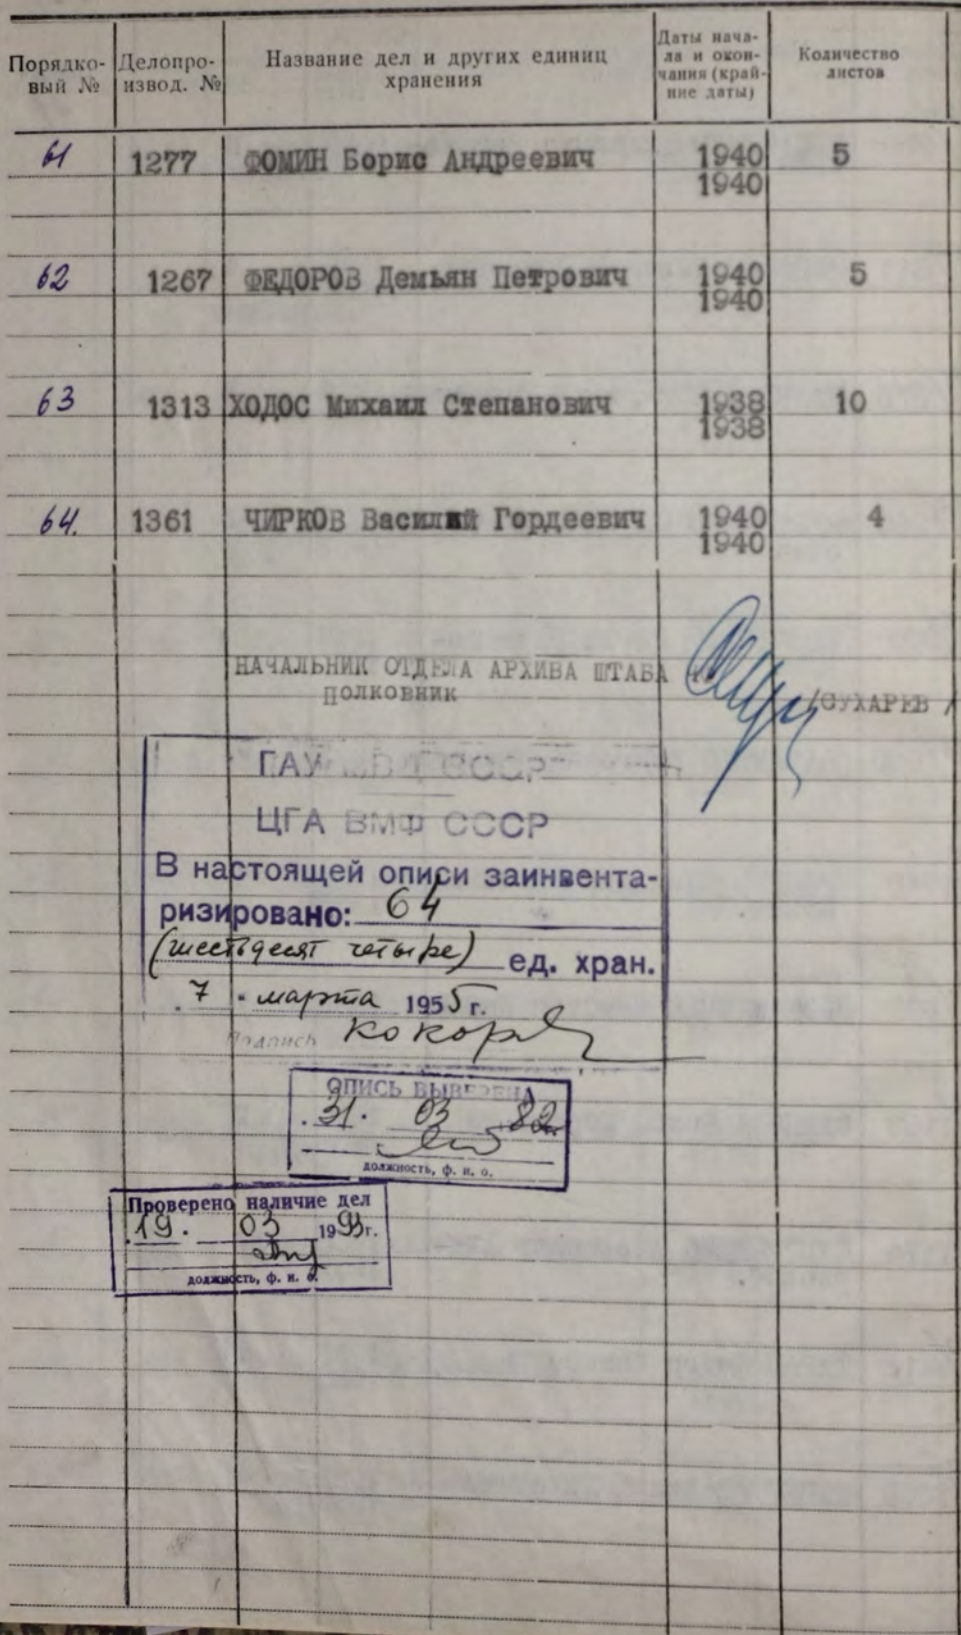 Порядко-вый № Делопро-извод. № Название дел и других единиц хранения Даты нача-ла и окон-чания (край-ние даты) Количество листов
61 1277 ФОМИН Борис Андреевич 1940 5
1940
62 1267 ФЕДОРОВ Демьян Петрович 1940 5
1940
63 1313 ХОДОС Михаил Степанович 1938 10
1938
64. 1361 ЧИРКОВ Василий Гордеевич 1940 4
1940
НАЧАЛЬНИК ОТДЕЛА АРХИВА ШТАБА
ПОЛКОВНИК /СУХАРЕВ /
ГАУ СССР
ЦГА ВМФ СССР
В настоящей описи заинвента-
ризировано: 64
(шестьдесят четыре) ед. хран.
7 " марта 1955 г.
Подпись
ОПИСЬ ВЫВЕРЕНА
31. 03 82
должность, ф. и. о.
Проверено наличие дел
19. 03 1993г.
должность, ф. и. о.